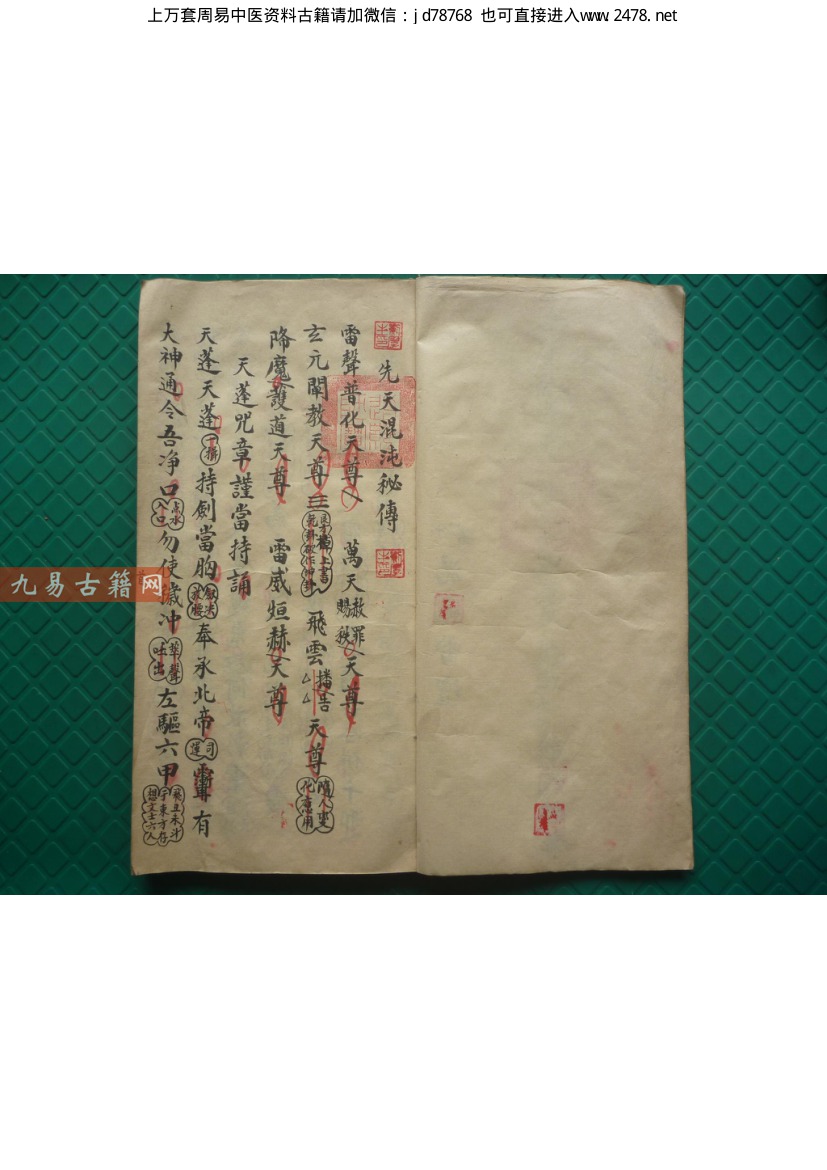 上万套周易中医资料古籍请加微信：jd78768 也可直接进入www.2478.net
先天混沌秘傳
雷聲普化天尊 萬天赦罪賜秩天尊
玄元闡教天尊 飛雲播告天尊 隨人變化應用
降魔護道天尊 雷威烜赫天尊
天蓬咒章謹當持誦
天蓬天蓬 持劍當胸 奉承北帝 有
大神通令吾净口 点水入口 勿使濊冲 左驅六甲
九易古籍网